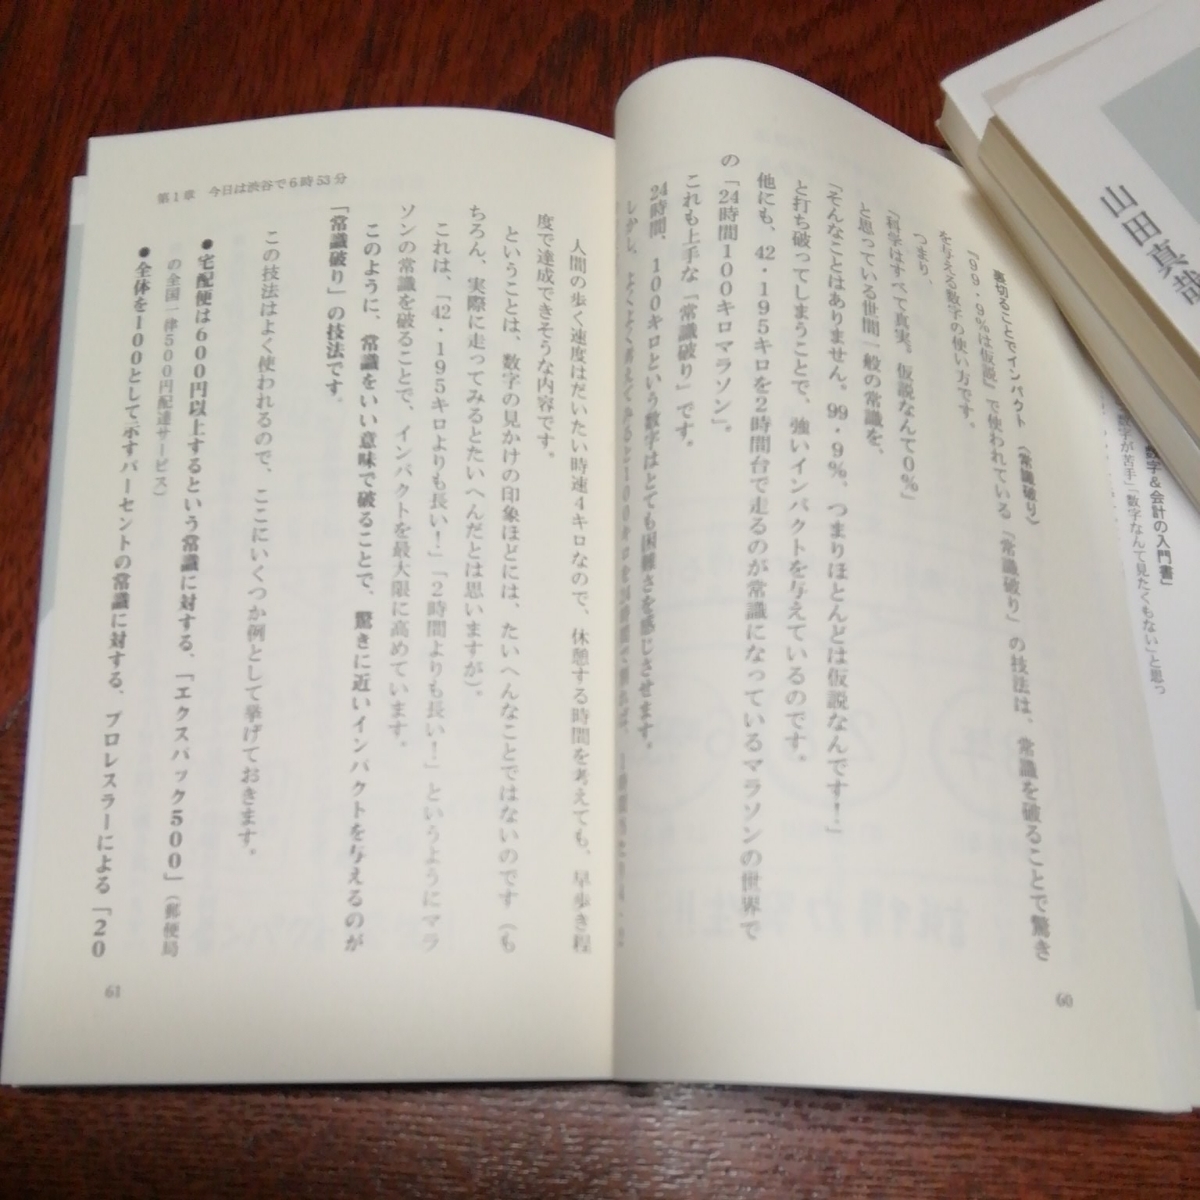 裏切ることでインパクト（常識破り）
『99・9％は仮説』で使われている『常識破り』の技法は、常識を破ることで驚き
を与える数字の使い方です。
つまり、
「科学はすべて真実。仮説なんて0％」
と思っている世間一般の常識を、
「そんなことはありません。99・9％、つまりほとんどは仮説なんです！」
と打ち破ってしまうことで、強いインパクトを与えているのです。
他にも、42・195キロを2時間台で走るのが常識になっているマラソンの世界で
の「24時間100キロマラソン」。
これも上手な『常識破り』です。
24時間、100キロという数字はとても困難さを感じさせます。
しかし、よくよく考えてみると100キロを24時間で割れば、1時間あたり4・2
60
第1章　今日は渋谷で6時53分
人間の歩く速度はだいたい時速4キロなので、休憩する時間を考えても、早歩き程
度で達成できそうな内容です。
ということは、数字の見かけの印象ほどには、たいへんなことではないのです（も
ちろん、実際に走ってみるとたいへんだとは思いますが）。
これは、「42・195キロよりも長い！」「2時間よりも長い！」というようにマラ
ソンの常識を破ることで、インパクトを最大限に高めています。
このように、常識をいい意味で破ることで、驚きに近いインパクトを与えるのが
「常識破り」の技法です。
この技法はよく使われるので、ここにいくつか例として挙げておきます。
●宅配便は600円以上するという常識に対する、「エクスパック500」（郵便局
の全国一律500円配達サービス）
●全体を100として示すパーセントの常識に対する、プロレスラーによる「20
61
山田真哉
数字＆会計の入門書」
数字が苦手」「数字なんて見たくもない」と思っ